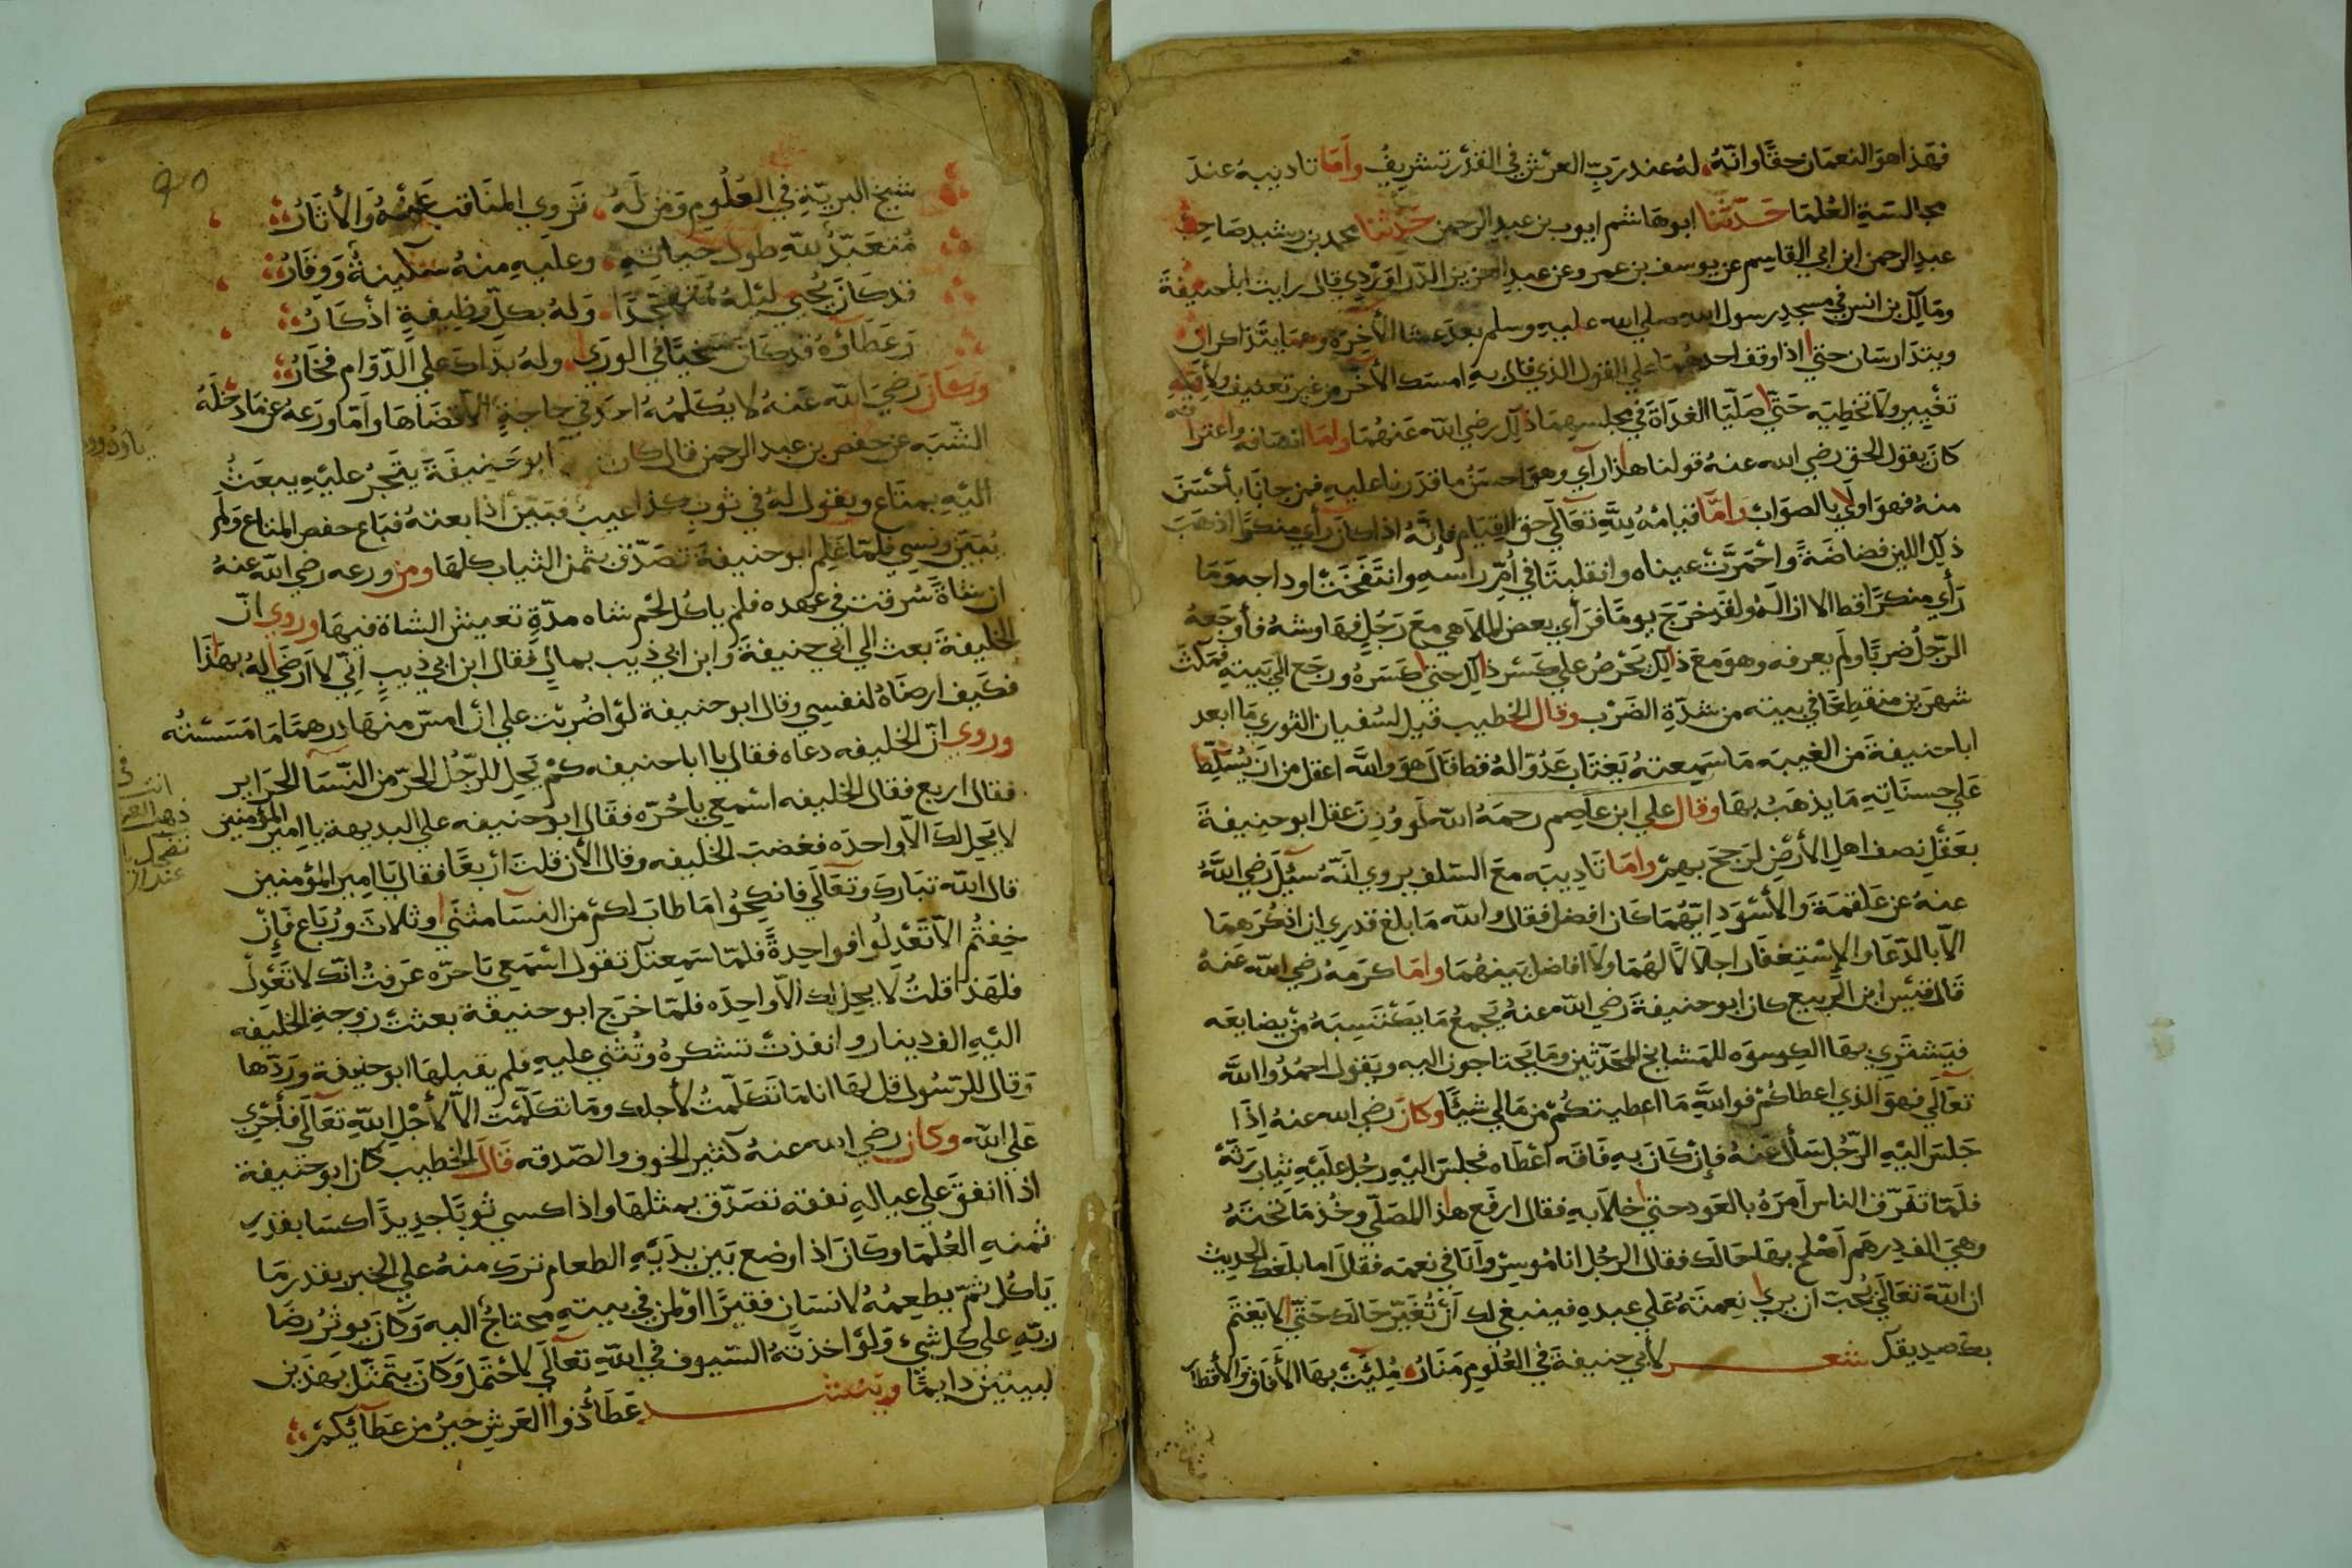 فهذا هو النعمان حقًّا وانّهُ له عند ربّ العرش في القدر تشريفُ وأمّا تاديبهُ عند
مجالسة العُلمَا حَدّثنا ابو هاشم ايوب بن عبد الرحمن حدّثنا محمد بن رشيد صَاحِب
عبد الرحمن ابن ابي القاسم عن يوسف بن عمر وعن عبد العزيز الدّراوَرْدِي قال رايت ابا حنيفة
ومَالِك بن انس في مسجد رسول الله صلي الله عليه وسلم بعد عشا الأخِرَة وهمَا يتَذَاكرانِ
ويتدارسَان حتي اذا وقف احدهُمَا علي القول الذي قال به امسَك الأخَر من غير تعنيف ولا
تغْيير ولا تخطيَه حَتّي صَلّيَا الغدَاةَ في مجلسِهمَا ذلِك رضي الله عَنهُمَا وأمّا انصَافه واعترافه
كانَ يقول الحق رضي الله عنهُ قولنا هذا رآي وهو احسَنُ ما قدَرنا عليهِ فمن جانَا بأحْسَنَ
منهُ فهوَ اولَي بالصوَابِ وَامّا قيامُهُ لِلّهِ تعَالَي حق القيَام فإنّهُ اذا كانَ رأي منكرًا ذهَبَ
ذلِك اللين فضاضَةً واحْمَرّتْ عيناه وانقلبتَا في اُمّ راسهِ وانتَفخَتْ اوداجه ومَا
رَأي منكرًا قط الا ازالَهُ ولقد خرَجَ يومًا فرَأي بعض الملاهي معَ رَجُلٍ فهَاوشهُ فأوجَعهُ
الرّجُل ضربًا ولَم يعرفه وهوَ معَ ذلك يَحْرصُ علي كسْرِ ذلك حتي كسَرهُ ورجَع الي بَيتهِ فمكثَ
شهرَين منقطِعًا في بيته من شدّةِ الضَرْب وقال الخطيب قيل لسُفيان الثوري مَا ابعد
ابا حنيفةَ من الغيبَه مَا سَمِيعتهُ يَغتَاب عَدُوّا لهُ قط قال هوَ والله اعقل من ان يُسَلّط
عَلَي حسنَاتِهِ مَا يذهَبُ بهَا وقال علي ابن عاصِم رحمَهُ الله لَو وُزِنَ عقل ابو حنيفةَ
بعَقْلِ نِصف اهل الأرْضِ لرَجحَ بهم وامّا تَادِيبَه معَ السّلفِ يروي انّهُ سئِلَ رضي اللهُ
عنهُ عن عَلقمَةَ والأسْوَدِ ايّهُمَا كان افضل فقال والله مَا بلغ قدرِي ان اذكرَهمَا
الاّ بالدّعَا والإسْتِغفَار اجلالاً لهُمَا ولا افاضل بينهُمَا وامّا كرمهُ رضي الله عَنهُ
قَال قيْس ابن الرّبيع كان ابو حنيفةَ رضي الله عنهُ يَجمعُ مَا يَكْتسِبَهُ من بضايعَه
فيَشترَي بهَا الكِسوَه للمشايخ المحَدّثين ومَا يَحتاجون اليه ويَقول احمُدُوا الله
تعَالَي فهوَ الذي اعطاكُمْ فوَاللهِ مَا اعطيتكمْ من مَالي شيئًا وكانَ رضي الله عنهُ اِذَا
جَلسَ اليْهِ الرّجُل سَأل عَنهُ فإنْ كانَ بهِ فاقَه اعْطَاه فجلسَ اليْهِ رجُل علَيْهِ ثيَاب رَثّهْ
فلَمّا تفَرّق الناس اَمرَهُ بالعَود حتي خلاَ بهِ فقال ارفَع هذا المصَلّي وخُذ مَا تَحْتَهُ
وهيَ الف دِرهَم اَصْلح بهَا حَالَك فقال الرجُل انا مُوسِرٌ وَاَنَا في نعمَه فقال اما بلَغكَ الحديث
ان الله تعَالَي يُحبّ ان يري نِعمتَهُ علَي عبده فينبغي لك اَنْ تُغَيّر حَالَك حَتّي لا يَغْتَم
بك صديقك شعر لأبي حنيفةَ في العُلُوم مَنَارُ مُلِئَتْ بهَا الأفَاق والأقطَار
90
شيخ البريّةِ في العُلُوم وَمن لَهُ تَروِي المنَاقب عَنْهُ والأثَارُ
مُتعَبّدٌ للّه طولَ حيَاتهِ وعلَيهِ منهُ سَكينةٌ وَوقَارُ
قد كانَ يُحيي ليْلهُ مُتهَجّدًا وَلهُ بكلّ وَظيفةٍ اذكَارُ
وَعطَآؤُهُ قد كانَ سَخيًّا في الورَي ولهُ بذَاكَ علَي الدّوَام فَخَارُ
وكانَ رضيَ الله عَنهُ لا يُكلّمُهُ احد في حاجةٍ الاّ قضَاهَا وأمّا ورَعهُ عن مَا دخلَهُ
الشّبَه عن حَفص بن عبد الرحمن قال كان ابو حَنيفَةَ يتّجرُ عليْهِ يبعَثُ
اليْهِ بمتَاعٍ ويقول لهُ في ثوبِ كذا عيبٌ فبَيّن اذا بعتهُ فبَاع حفص المتاع وَلَم
يُبَيّن ونَسِي فلمّا عَلِم ابو حنيفةَ تصَدّق بثمن الثياب كلهَا ومن ورعه رضي الله عنهُ
ان شاةً سُرقت في عهده فلم ياكُل لحْم شاه مدّةِ تعيش الشاة فيهَا وروي انّ
الخليفةَ بعث الي ابي حنيفةَ وابن ابي ذيب بمالٍ فقال ابن ابي ذيبٍ انّي لا ارضَي لهُ بهذَا
فكَيف ارضَاهُ لنفسِي وقال ابو حنيفة لوْ اضُربْت علي انْ امسّ منهَا درهمًا مَا مَسَستُه
وروي انّ الخليفه دعاه فقال يا ابا حنيفه كمْ يَحِل للرّجُل الحرّ من النّسَا الحَراير
فقال اربع فقال الخليفه اسْمعِي يا حُرّه فقال ابو حنيفه علي البديهة يا امير المؤمنين
لا يَحِل لك الاّ واحدَه فغضبَ الخليفه وقال الأن قلتَ اربعًا فقال يَا امير المؤمنين
قال الله تبَاركَ وتعَالَي فانكِحُوا مَا طابَ لكمْ من النسَآ مثنَي وثلاثَ ورُبَاع فَإِنْ
خِفتُم الاّ تَعْدِلُوا فوَاحِدةً فلمّا سَمِعتك تقول اسْمَعي يَا حرّه عَرفتُ انّك لا تعْدلْ
فلهَذا قلتُ لا يحِل لك الاّ واحدَه فلمّا خرَج ابو حنيفة بعثَتْ زوجة الخليفه
اليْهِ الف دينار وانفذتْ تشكرهُ وتُثني عليهِ فلم يقبلهَا ابو حنيفة ورَدّها
وقال للرّسُول قل لهَا انا مَا تكلّمتُ لأجلك ومَا تكلّمت الاّ لأجْلِ اللهِ تعَالَي فأجْرِي
علَي اللّه وكان رضي الله عنهُ كثير الخوف والصّدقه قَال الخطيب كان ابو حنيفة
اذا انفقَ علَي عيالهِ نفقه تصَدّق بمثلهَا واذا كسي ثوبًا جدِيدًا كسَا بقدْرِ
ثمنهِ العُلمَا وكَانَ اذا وضع بَين يدَيْهِ الطعام ترك منهُ علَي الخبز بقدر مَا
يَاكل ثمّ يطعِمُهُ لانسَان فقيرًا اوْ لمن في بيتهِ محتاجٌ اليه وكانَ يوثِرُ رضَا
ربّهِ علي كل شيء وَلوْ اخذتهُ السّيوف في اللّهِ تعَالَي لاحْتمَل وكانَ يتَمثّل بهذين
البيتين دايمًا وينشد عَطَآءُ ذو العَرشِ خيرٌ من عَطَآئِكُمْ